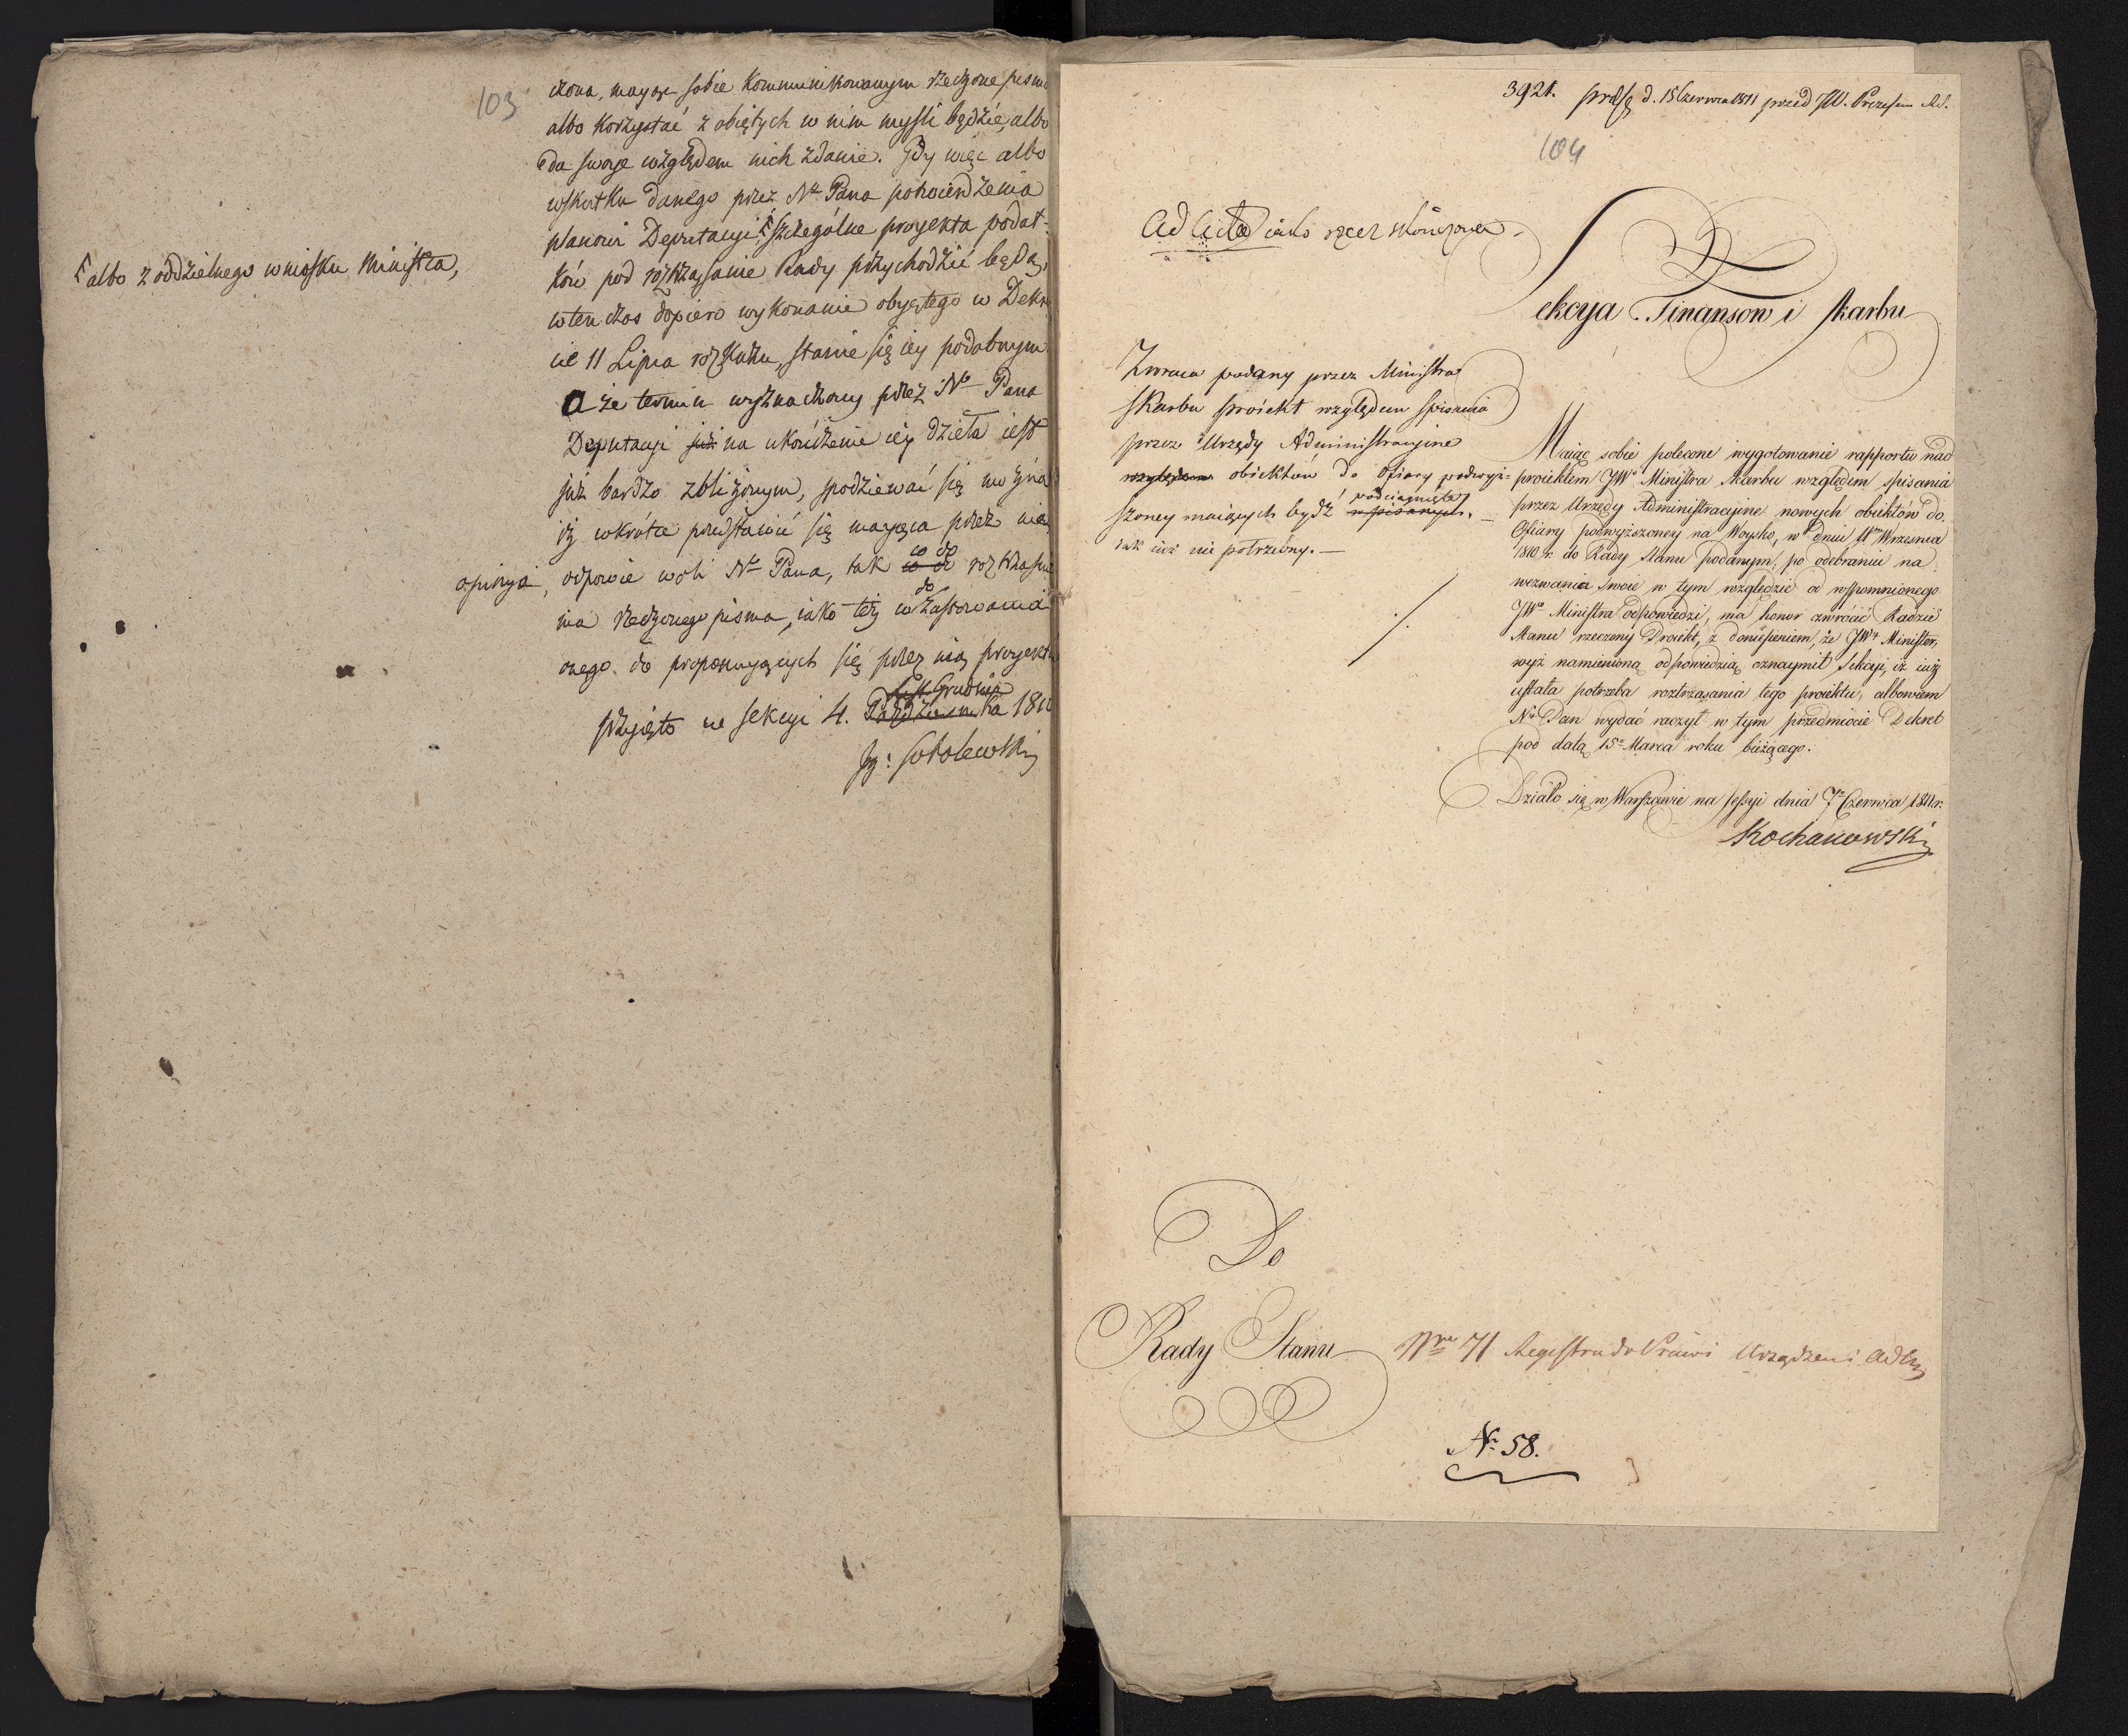 103
dzona, mając sobie kommunikowanym rzeczone pismo
albo korzystać z obiętych w nim myśli będzie, albo
da swoje względem nich zdanie. Gdy więc albo
wskutku danego przez Nº Pana potwierdzenia
planowi Deputacyi, szczególne proyekta podat-
ków pod roztrząsanie Rady przychodzić będą,
wtenczas dopiero wykonanie obyętego w Dekre
cie 11 Lipca rozkazu, stanie się iey podobnym
A że termin wyznaczony przez Nº Pana
Deputacyi już na ukończenie iey dzieła iest
już bardzo zbliżonym, spodziewać się można
iż wkrótce przedstawić się mayąca przez nią
opinya, odpowie woli Nº Pana, tak co do roztrząśnie
nia rzeczonego pisma, iako też do zastosowania
onego do proponuyących się przez nią proyektu
Przyięto na sekcyi 4. Października Grudnia 1810
Sobolewski
albo z oddzielnego wniosku Ministra,
3921. d. 15 Czerwca 1811 przed JW. Prezesem
104
Ad Acta iako rzecz skończona.
Sekcya Finansow i Skarbu
Zwraca podany przez Ministra
Skarbu proiekt względem spisania
przez Urzędy Administracyine
względem obiektów do Ofiary podwyż-
szoney maiących bydź podciągnięte wpisanych. —
iak iuż nie potrzebny. —
Maiąc sobie polecone wygotowanie rapportu nad
proiektem JWº Ministra Skarbu względem spisania
przez Urzędy Administracyine nowych obiektów do
Ofiary podwyższoney na Woysko, w dniu 11m Wrzesnia
1810 r. do Rady Stanu podanym, po odebraniu na
wezwania swoie w tym względzie od wspomnionego
JWº Ministra odpowiedzi, ma honor zwrócić Radzie
Stanu rzeczony Proiekt, z doniesieniem, że JWy Minister,
wyż namienioną odpowiedzią oznaymił Sekcyi, iż iuż
ustała potrzeba roztrząsania tego proiektu, albowiem
Ny Pan wydać raczył w tym przedmiocie Dekret
pod datą 15º Marca roku bieżącego.
Działo się w Warszawie na sessyi dnia 7º Czerwca 1811 r.
Kochanowski
Do
Rady Stanu
Nro 71 Urządzeni
Nr. 58.